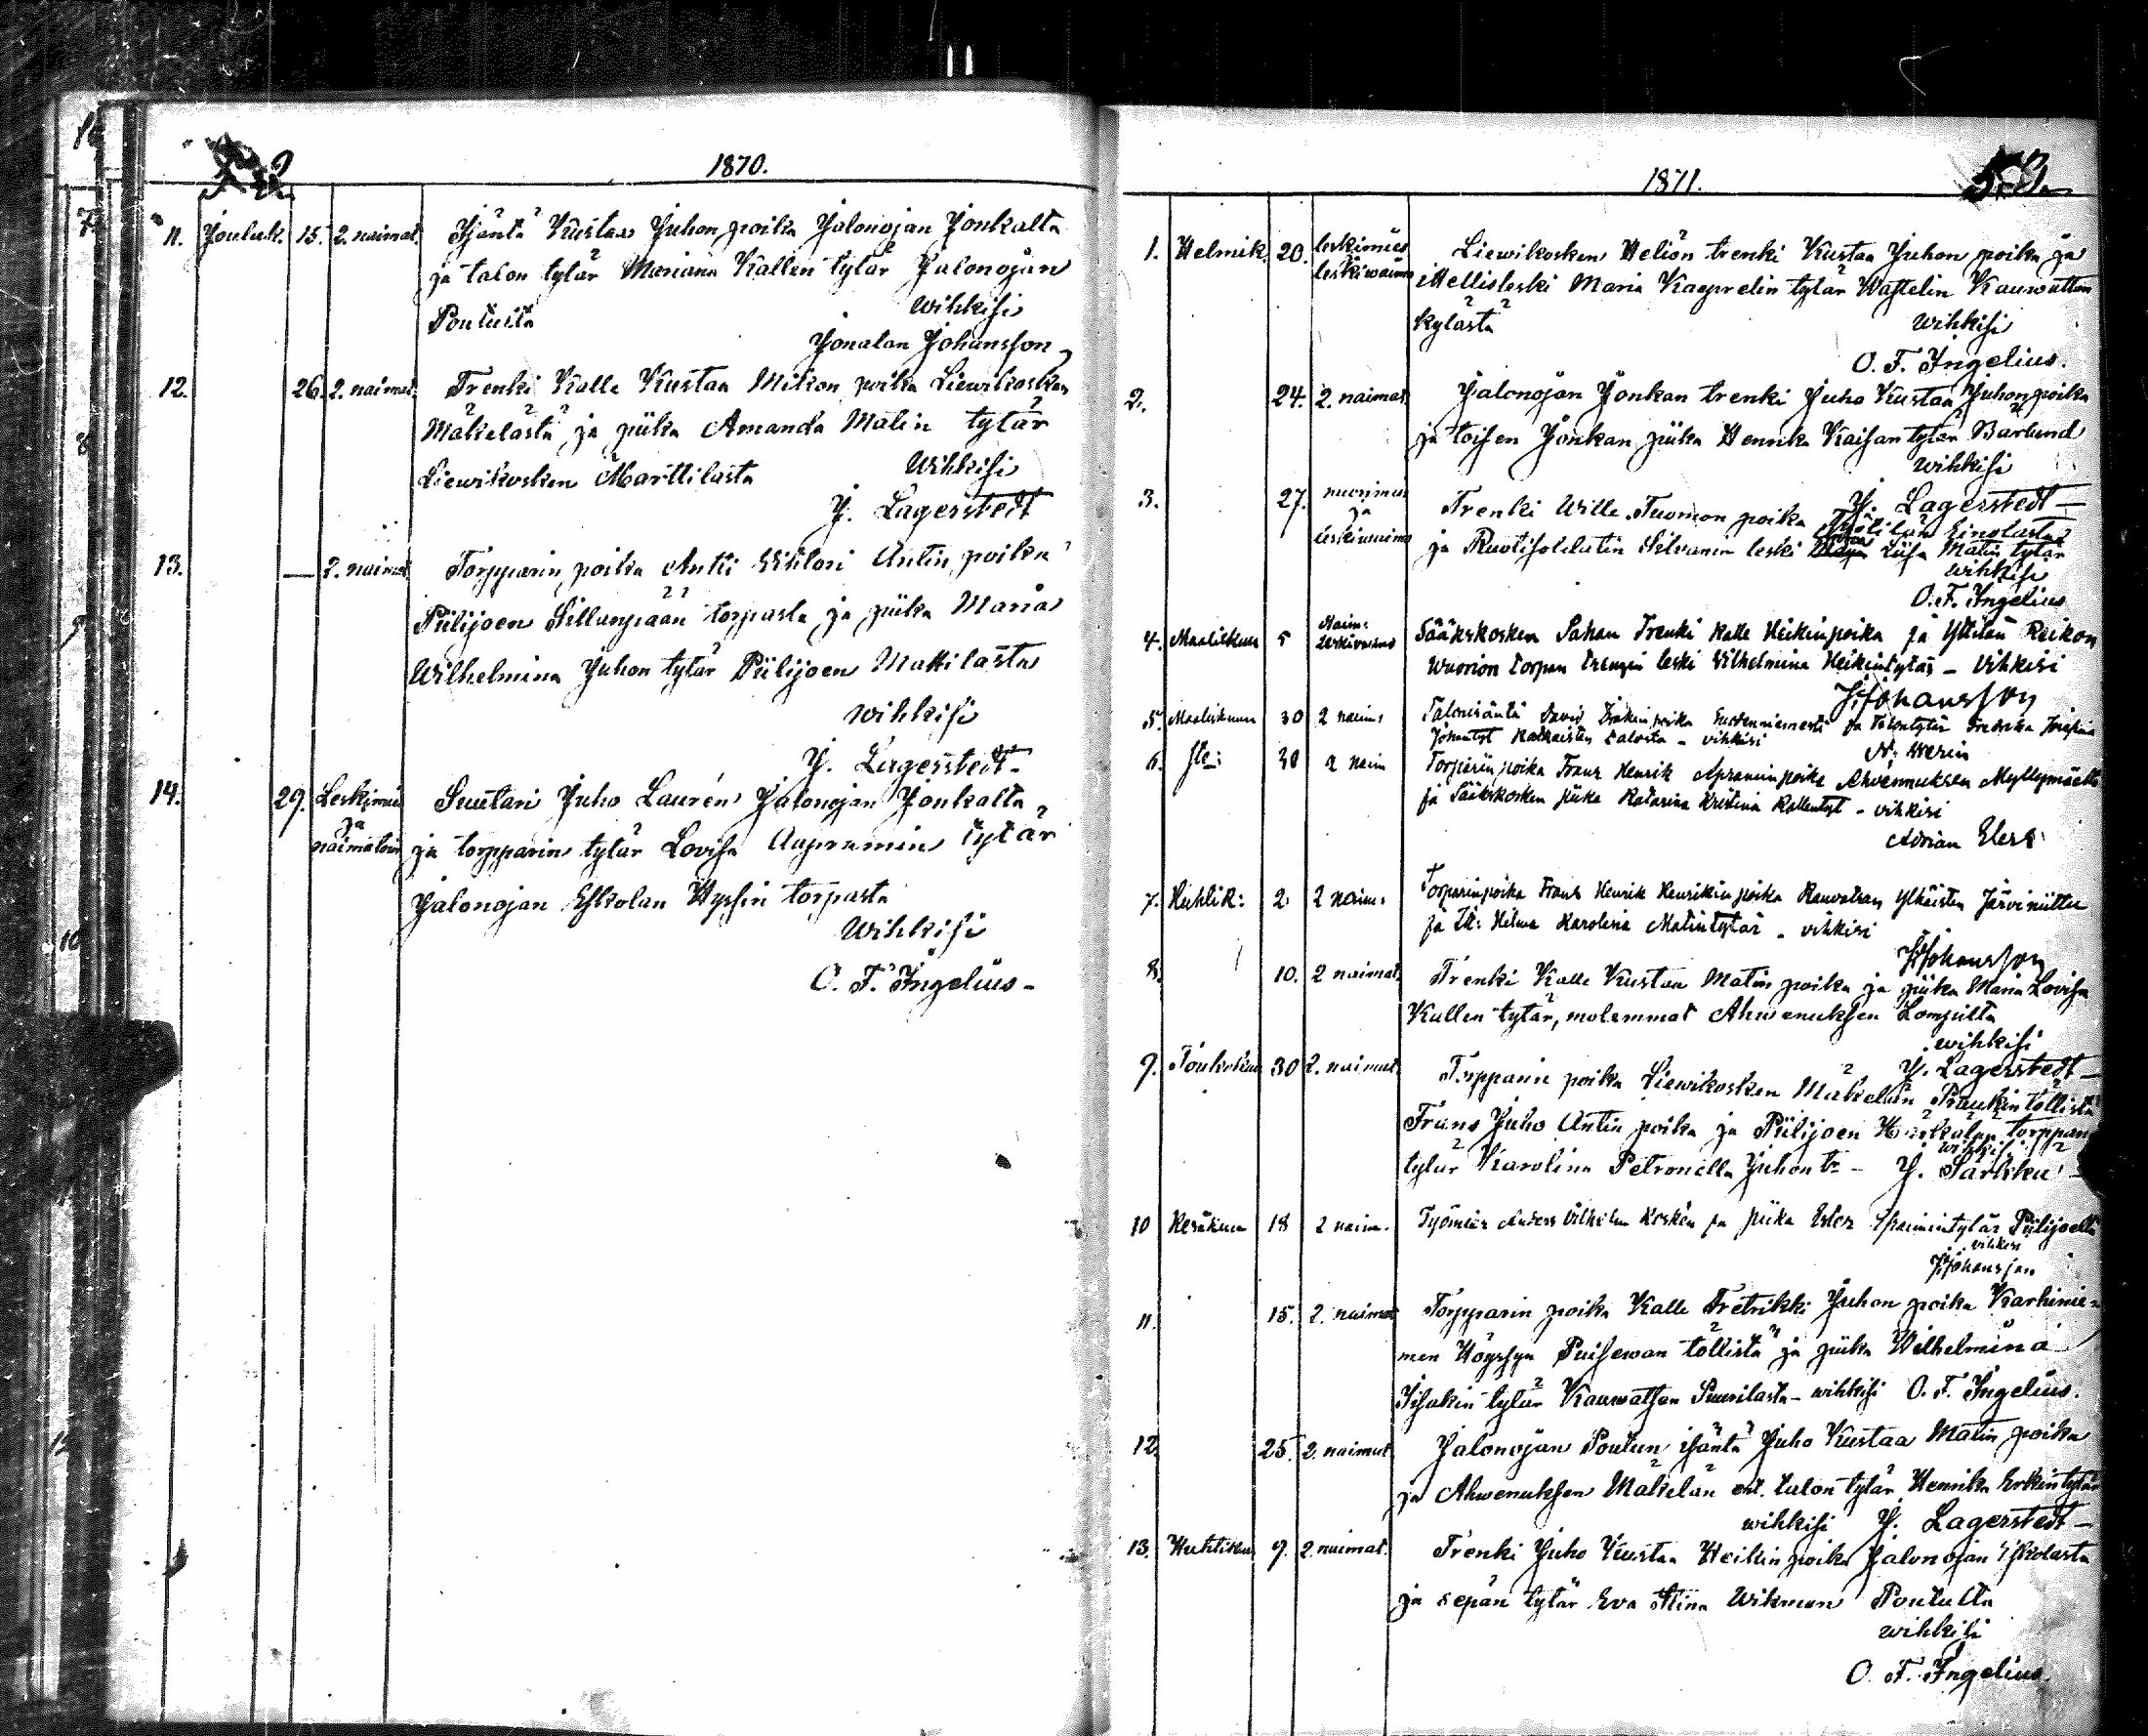 1870.
11. Jouluk. 15. 2. naimat. Isäntä Kustaa Juhon poika Jalonojan Jonkalta
ja talon tytär Mariana Kallen tytär Jalonojan
Poutusta wihkisi
Jonatan Johansson
12. 26. 2. naimat. Trenki Kalle Kustaa Mikon poika Liewikosken
Mäkelästä ja piika Amanda Matin tytär
Liewikosken Marttilasta Wihkisi
J. Lagerstedt
13. — 2. naimat Torpparin poika Antti Wihtori Antin poika
Piilijoen Sillanpään torpasta ja piika Maria
Wilhelmina Juhon tytär Piilijoen Mattilasta
wihkisi
J. Lagerstedt
14. 29. Leskimies Suutari Juho Laurén Jalonojan Jonkalta
ja naimatoin ja torpparin tytär Lovisa Aapramin tytär
Jalonojan Eskolan Hyssin torpasta
Wihkisi
O. F. Ingelius -
1871. 53.
1. Helmik. 20. leskimies Liewikosken Heliön trenki Kustaa Juhon poika ja
leskiwaimo itellisleski Maria Kaaprelin tytär Wastelin Kauwattan
kylästä wihkisi
O. F. Ingelius.
2. 24. 2. naimat. Jalonojan Jonkan trenki Juho Kustaa Juhon poika
ja toisen Jonkan piika Henrika Kaisan tytär Barlund
wihkisi
J. Lagerstedt —
3. 27. nuorimies ja leskiwaimo Trenki Wille Tuomon poika Einolasta
ja Ruotisoldatin Silvanin leski Liisa Matin tytär
wihkisi
O. F. Ingelius
4. Maaliskuu 5 Naim: Leskivaimo Sääkskosken Sahan Trenki Kalle Heikinpoika ja Yttilän Reikon
Wuorion torpan trengin leski Wilhelmina Heikintytär - Vihkisi
J. Johansson
5. Maaliskuu 30 2 naim: Talonisäntä David Isakin poika Suodenniemestä ja talontytär Fredrika Josefina
Johantyt talosta - vihkisi
N. Werin
6. 30 2 naim Torpärin poika Frans Henrik Apramin poika Ahvenuuksen Myllymäeltä
ja Sääkskosken piika Katarina Kristina Kallentyt - vihkisi
Adrian Elers
7. Huhtik: 2 2 naim: Torparinpoika Frans Henrik Henrikin poika Kauvatsan Yttäisten Järviniittu
ja It: Helma Karolina Matintytär - vihkisi
J. Johansson
8. 10. 2 naimat. Trenki Kalle Kustaa Matin poika ja piika Maria Lovisa
Kallen tytär, molemmat Ahwenuksen Lompilta
wihkisi
J. Lagerstedt —
9. Toukokuu 30 2. naimat. Torpparin poika Liewikosken Mäkelän Praukin töllistä
Frans Juho Antin poika ja Piilijoen Härkälän torppan
wihkisi
tytär Karolina Petronella Juhon tr - J. Särkkä
10 Kesäkuu 18 2 naim. Työmies Anders Vilhelm Koskén ja piika Ester Efraimintytär Piilijoelta
vihkesi
J. Johansson
11. 15. 2. naimat Torpparin poika Kalle Fretrikki Juhon poika Karhinie-
men Höyssyn Puisewan töllistä ja piika Wilhelmina
Isakin tytär Kauwatsan Suurilasta - wihkisi O. F. Ingelius.
12. 25. 2. naimat. Jalonojan Poutun isäntä Juho Kustaa Matin poika
ja Ahwenuksen Mäkelän ent. talon tytär Henrika Erkin tytär
wihkisi J. Lagerstedt —
13. Huhtikuu 9. 2. naimat. Trenki Juho Kustaa Heikin poika Jalonojan Eskolasta
ja sepän tytär Eva Stina Wikman Poutulta
wihkisi
O. F. Ingelius.